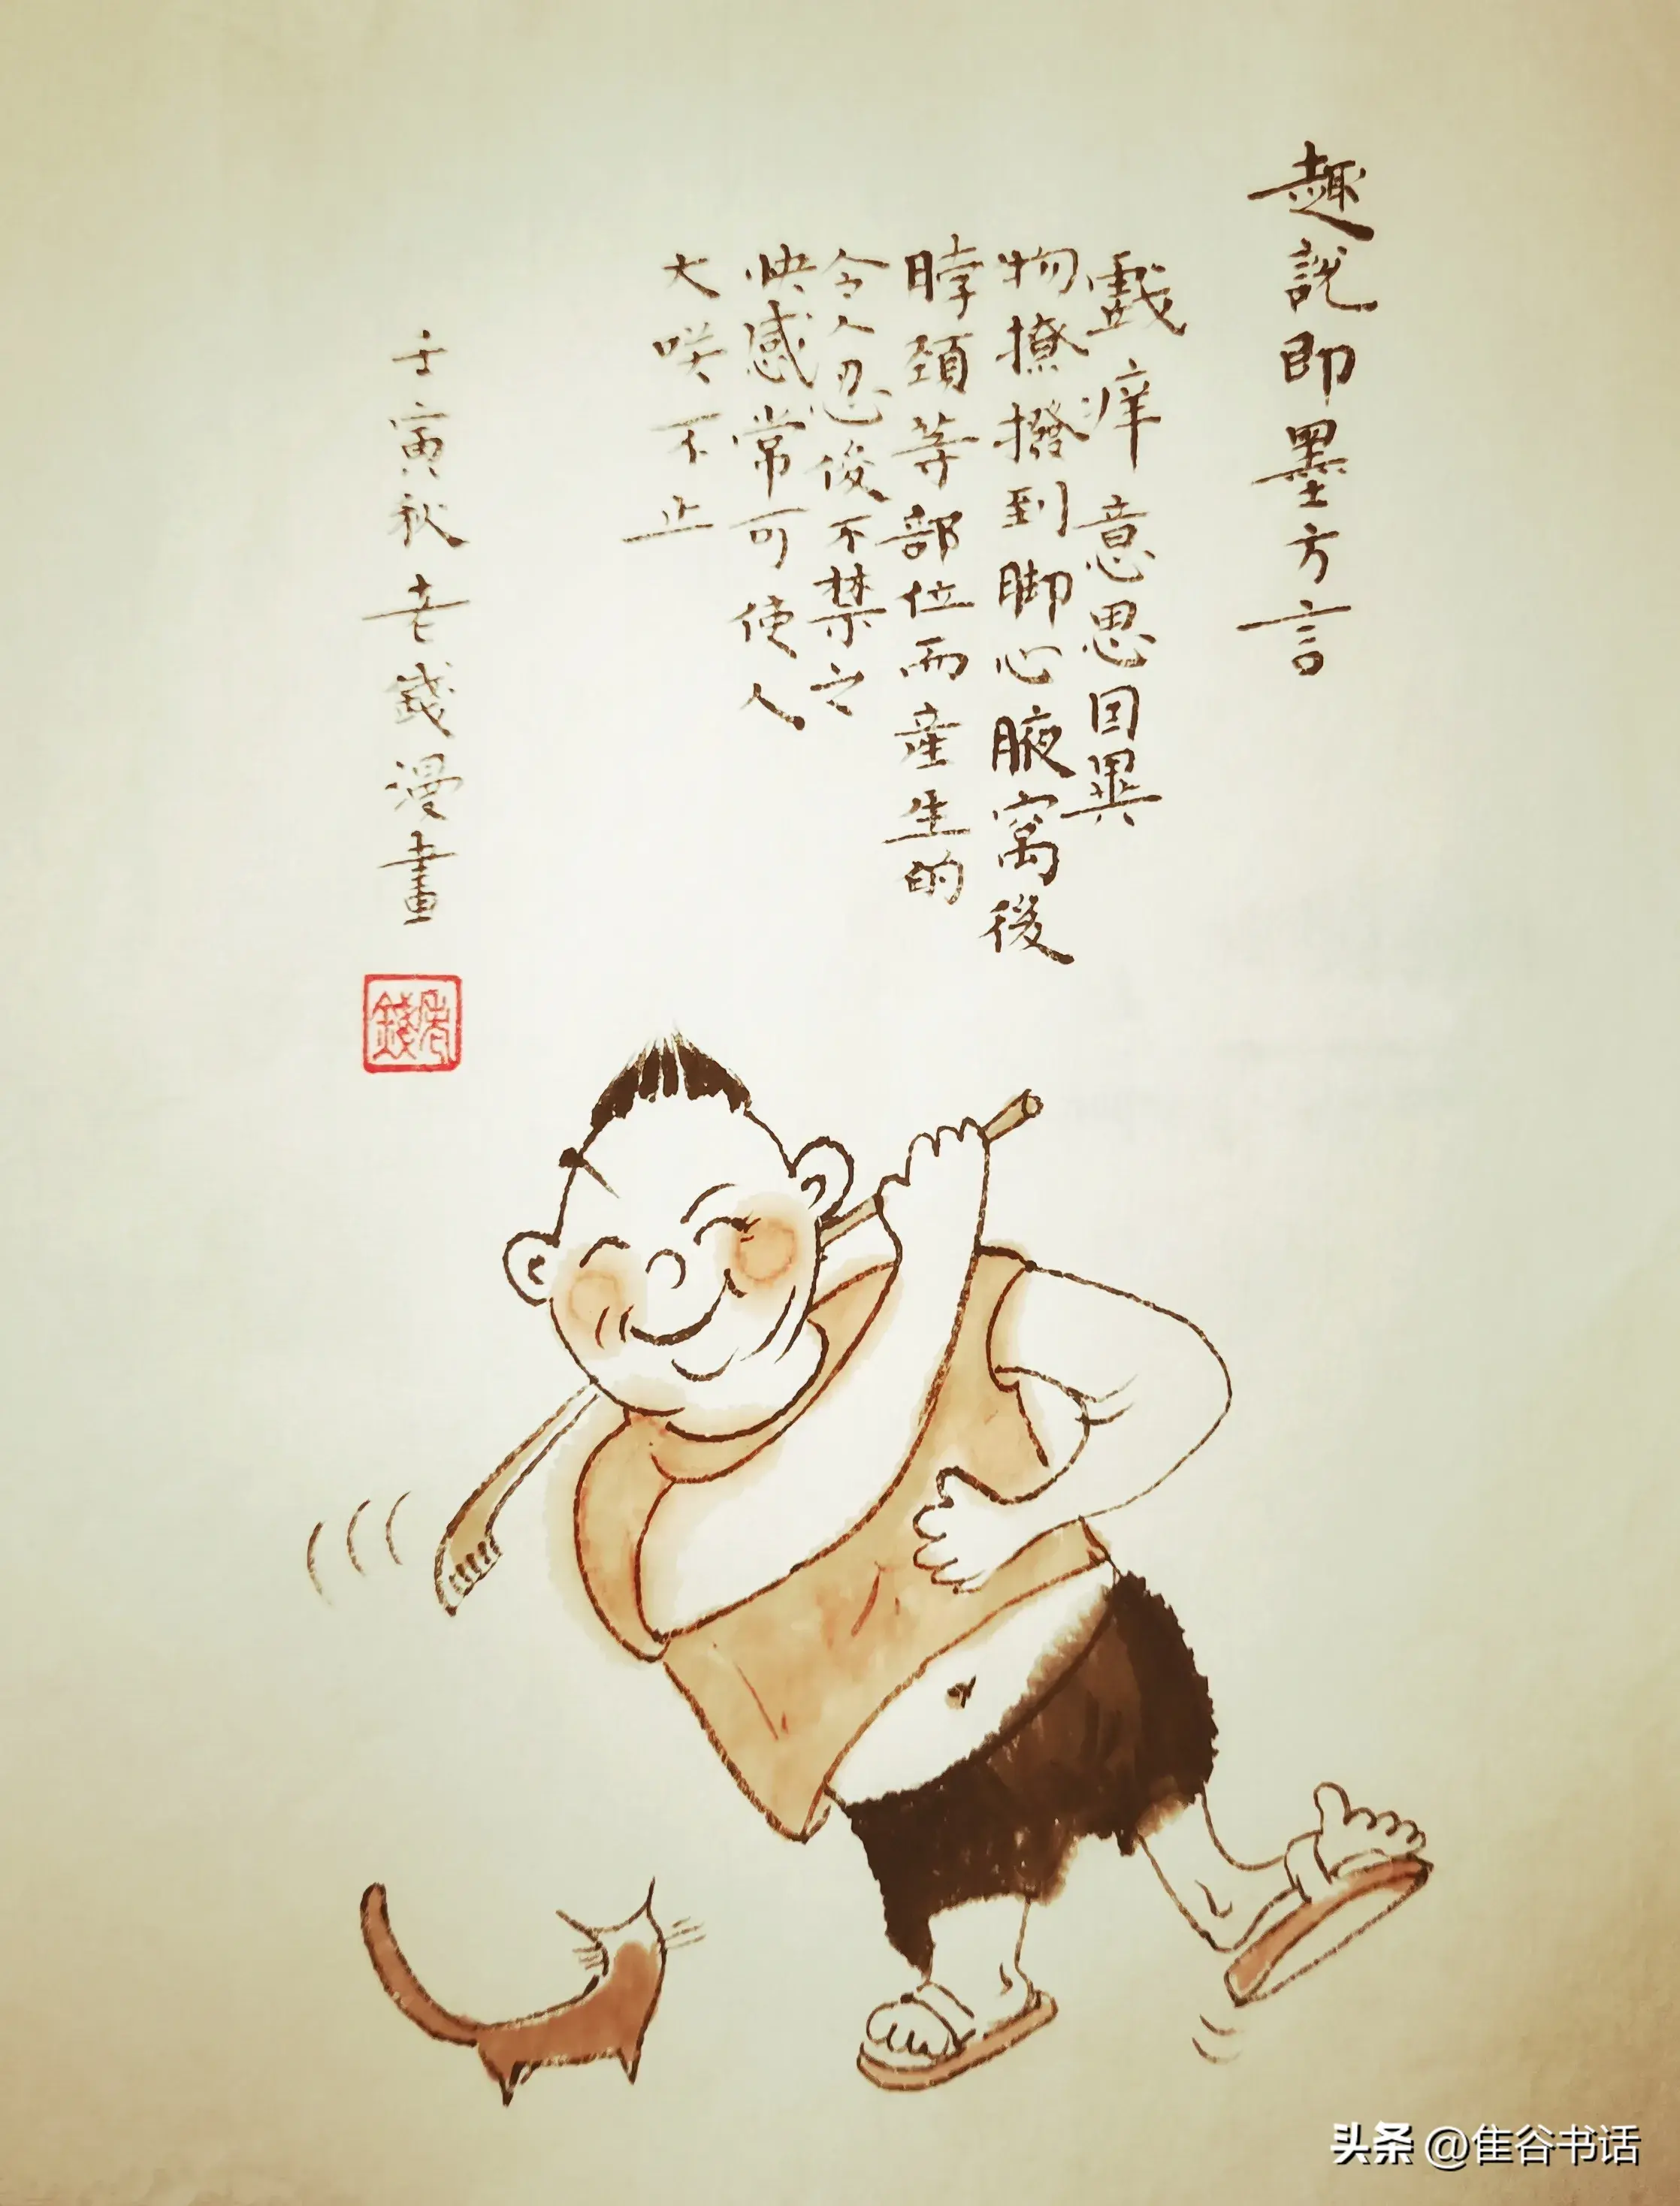 趣說即墨方言
戲痒 意思因異
物撩撥到脚心腋窩後
脖頸等部位而産生的
令人忍俊不禁之
快感常可使人
大咲不止
壬寅秋老錢漫畫
老錢
头条 @隹谷书话